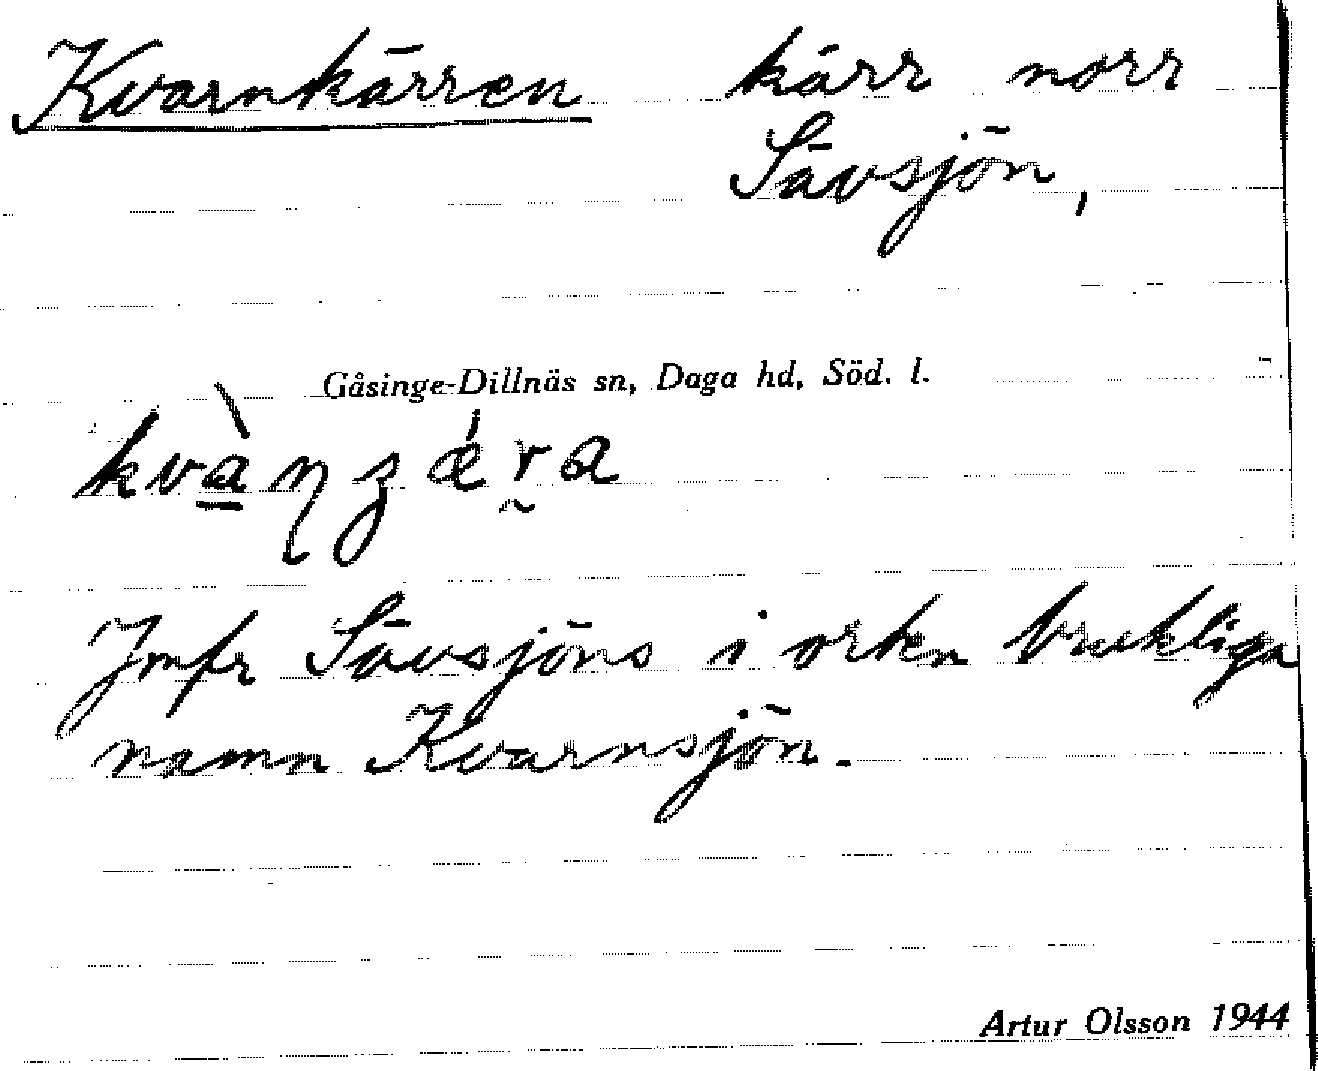 Kvarnkärren kärr norr
Sävsjön,
Gåsinge-Dillnäs sn, Daga hd, Söd. l.
Jmfr Sävsjöns i orten brukliga
namn Kvarnsjön.
Artur Olsson 1944